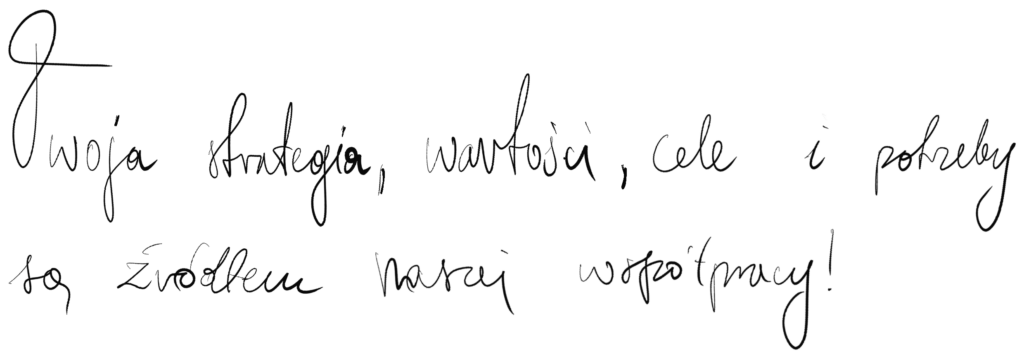 Twoja strategia, wartości, cele i potrzeby
są źródłem naszej współpracy!